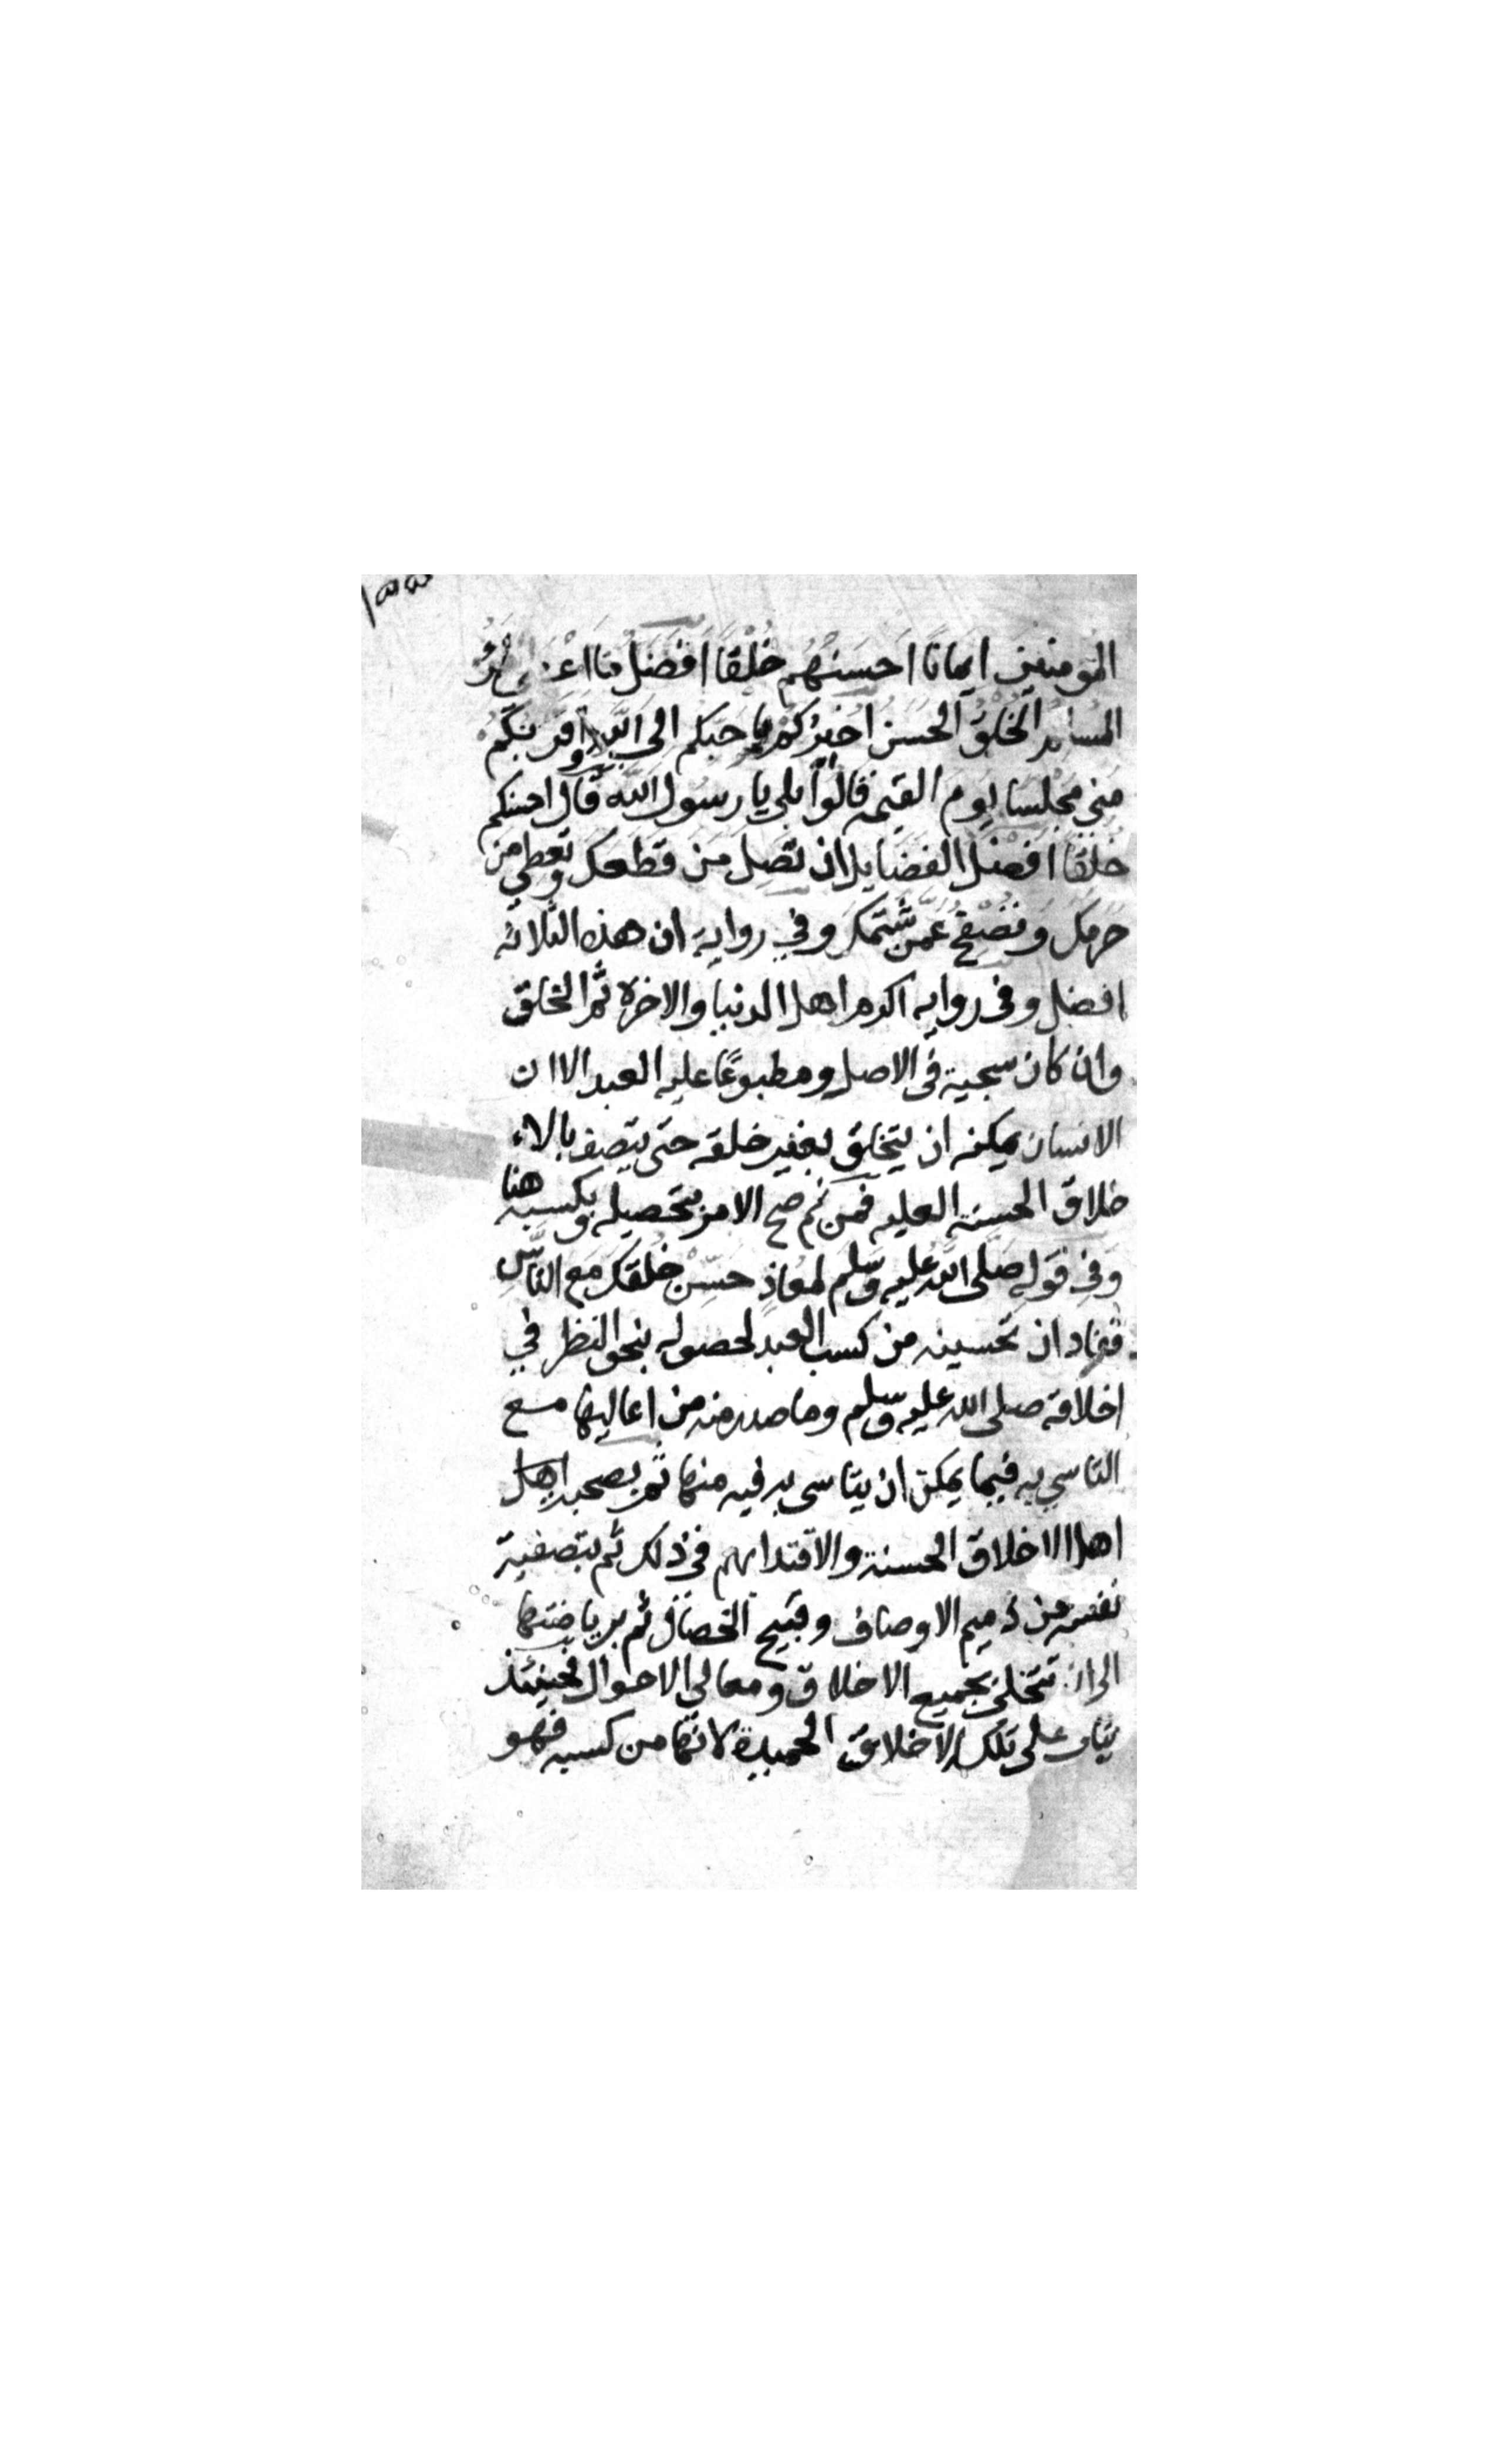 المؤمنين ايمانا احسنهم خُلُقًا افضل ما اعطي المرُ
المسلم الخُلُقُ الحسن اخبركم باحبكم الى الله واقربكم
مني مجلسا يوم القيمة قالوا بلى يا رسول الله قال احسنكم
خلقا افضل الفضايل ان تصل من قطعك وتعطي من
حرمك وتصفح عمن شتمك وفي رواية ان هذه الثلاثة
افضل وفى رواية اكرم اهل الدنيا والاخرة ثم الخلق
وان كان سجية فى الاصل ومطبوعًا عليه العبد الا ان
الانسان يمكنه ان يتخلق بغير خلقه حتى يتصف بالاء
خلاق الحسنة العلية فمن ثم صح الامر بتحصيله وبكسبه هنا
وفي قوله صلى الله عليه وسلم لمعاذ حسّن خلقك مع الناس
فمفاد ان تحسينه من كسب العبد لحصوله بنحو النظر في
اخلاقه صلى الله عليه وسلم وما صدر منه من اعاليها مع
التاسي به فيما يمكن ان يتاسى به فيه منها ثم بصحبة اهل
اهل الاخلاق الحسنة والاقتدا بهم فى ذلك ثم بتصفية
نفسه عن ذميم الاوصاف وقبيح الخصال ثم برياضتها
الى ان تتحلى بجميع الاخلاق ومعالي الاحوال فحينئذ
يثاب على تلك الاخلاق الحميدة لانها من كسبه فهو